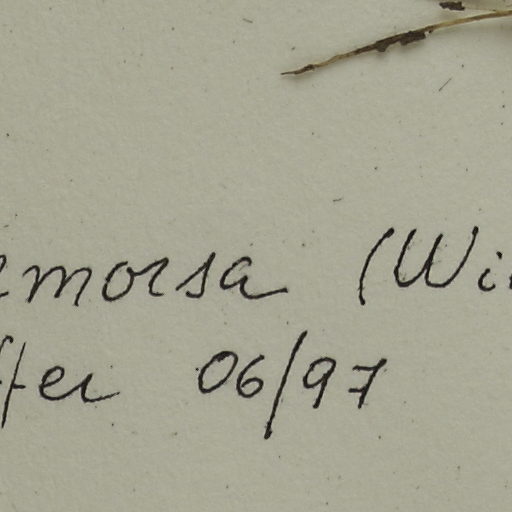 emorsa (Wi
ffer 06/97